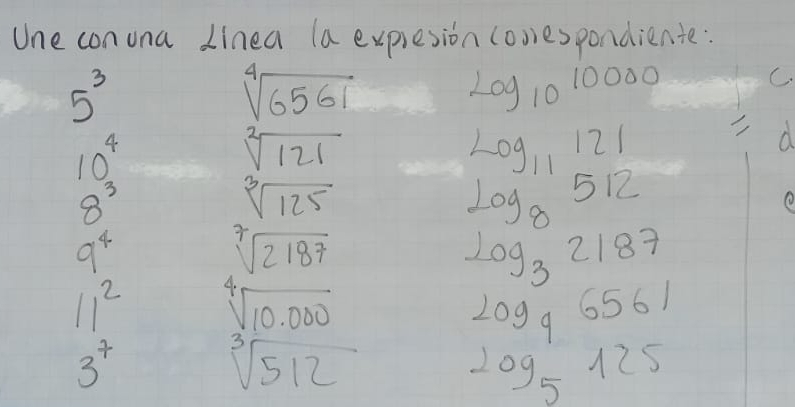 Une con una Linea la expresión correspondiente:
5³ ⁴√6561 Log₁₀ 10000 c.
10⁴ ²√121 Log₁₁ 121 = d
8³ ³√125 Log₈ 512 e
9⁴ ⁷√2187 Log₃ 2187
11² ⁴√10.000 Log₉ 6561
3⁷ ³√512 Log₅ 125